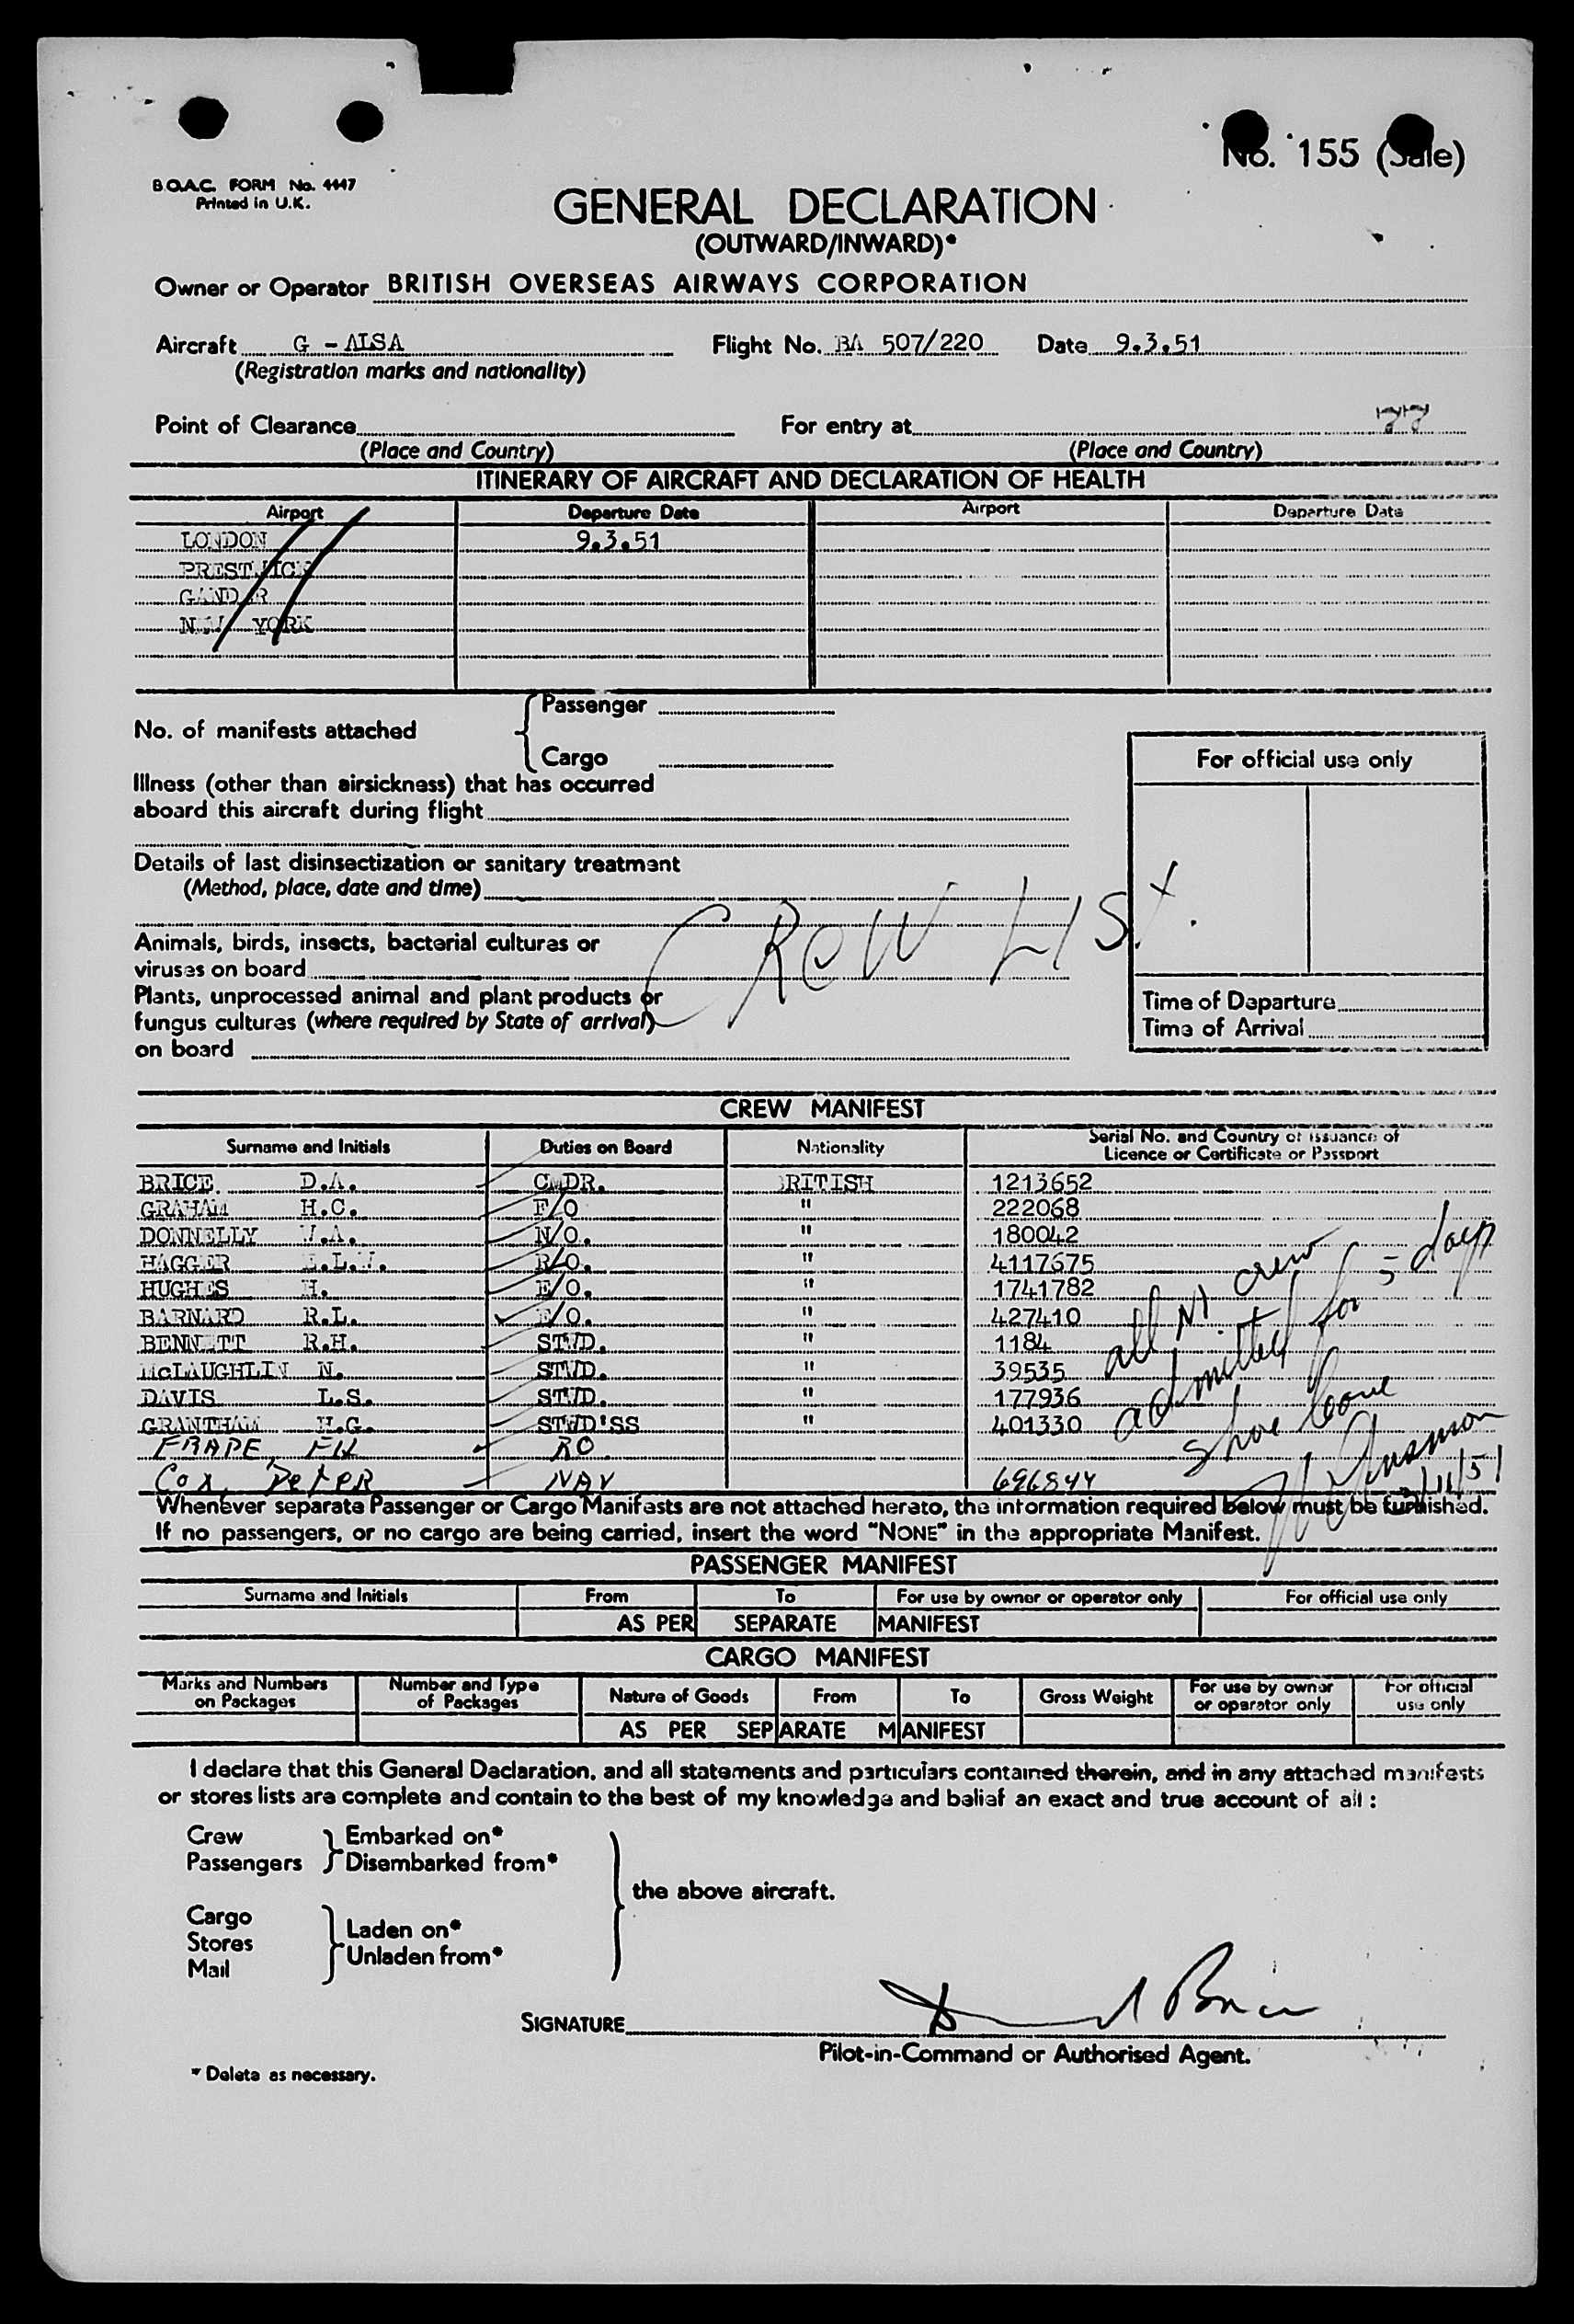 No. 155 (Sale)
B.O.A.C. FORM No. 4447
Printed in U.K.
GENERAL DECLARATION
(OUTWARD/INWARD)*
Owner or Operator BRITISH OVERSEAS AIRWAYS CORPORATION
Aircraft G - ALSA Flight No. BA 507/220 Date 9.3.51
(Registration marks and nationality)
Point of Clearance For entry at 77
(Place and Country) (Place and Country)
ITINERARY OF AIRCRAFT AND DECLARATION OF HEALTH
Airport Departure Date Airport Departure Date
LONDON 9.3.51
PRESTWICK
GANDER
NEW YORK
Passenger
No. of manifests attached
Cargo
For official use only
Illness (other than airsickness) that has occurred
aboard this aircraft during flight
Details of last disinsectization or sanitary treatment
(Method, place, date and time)
CREW LIST.
Animals, birds, insects, bacterial cultures or
viruses on board
Plants, unprocessed animal and plant products or
fungus cultures (where required by State of arrival)
on board
Time of Departure
Time of Arrival
CREW MANIFEST
Surname and Initials Duties on Board Nationality Serial No. and Country of issuance of
Licence or Certificate or Passport
BRICE. D.A. CMDR. BRITISH 1213652
GRAHAM H.C. F/O " 222068
DONNELLY W.A. N/O. " 180042
HAGGER .L.W. R/O. " 4117675
HUGHES H. E/O. " 1741782
BARNARD R.L. E/O. " 427410
BENNETT R.H. STWD. " 1184
McLAUGHLIN N. STWD. " 39535
DAVIS L.S. STWD. " 177936
GRANTHAM H.G. STWD'SS " 401330
FRAPE, FH RO
Cox, PeteR NAV 696844
all crew
admitted for 5 days
shore leave
Whenever separate Passenger or Cargo Manifests are not attached hereto, the information required below must be furnished.
If no passengers, or no cargo are being carried, insert the word "NONE" in the appropriate Manifest.
PASSENGER MANIFEST
Surname and Initials From To For use by owner or operator only For official use only
AS PER SEPARATE MANIFEST
CARGO MANIFEST
Marks and Numbers on Packages Number and Type of Packages Nature of Goods From To Gross Weight For use by owner or operator only For official use only
AS PER SEPARATE MANIFEST
I declare that this General Declaration, and all statements and particulars contained therein, and in any attached manifests
or stores lists are complete and contain to the best of my knowledge and belief an exact and true account of all :
Crew Embarked on*
Passengers Disembarked from*
the above aircraft.
Cargo
Stores Laden on*
Mail Unladen from*
SIGNATURE
Pilot-in-Command or Authorised Agent.
* Delete as necessary.